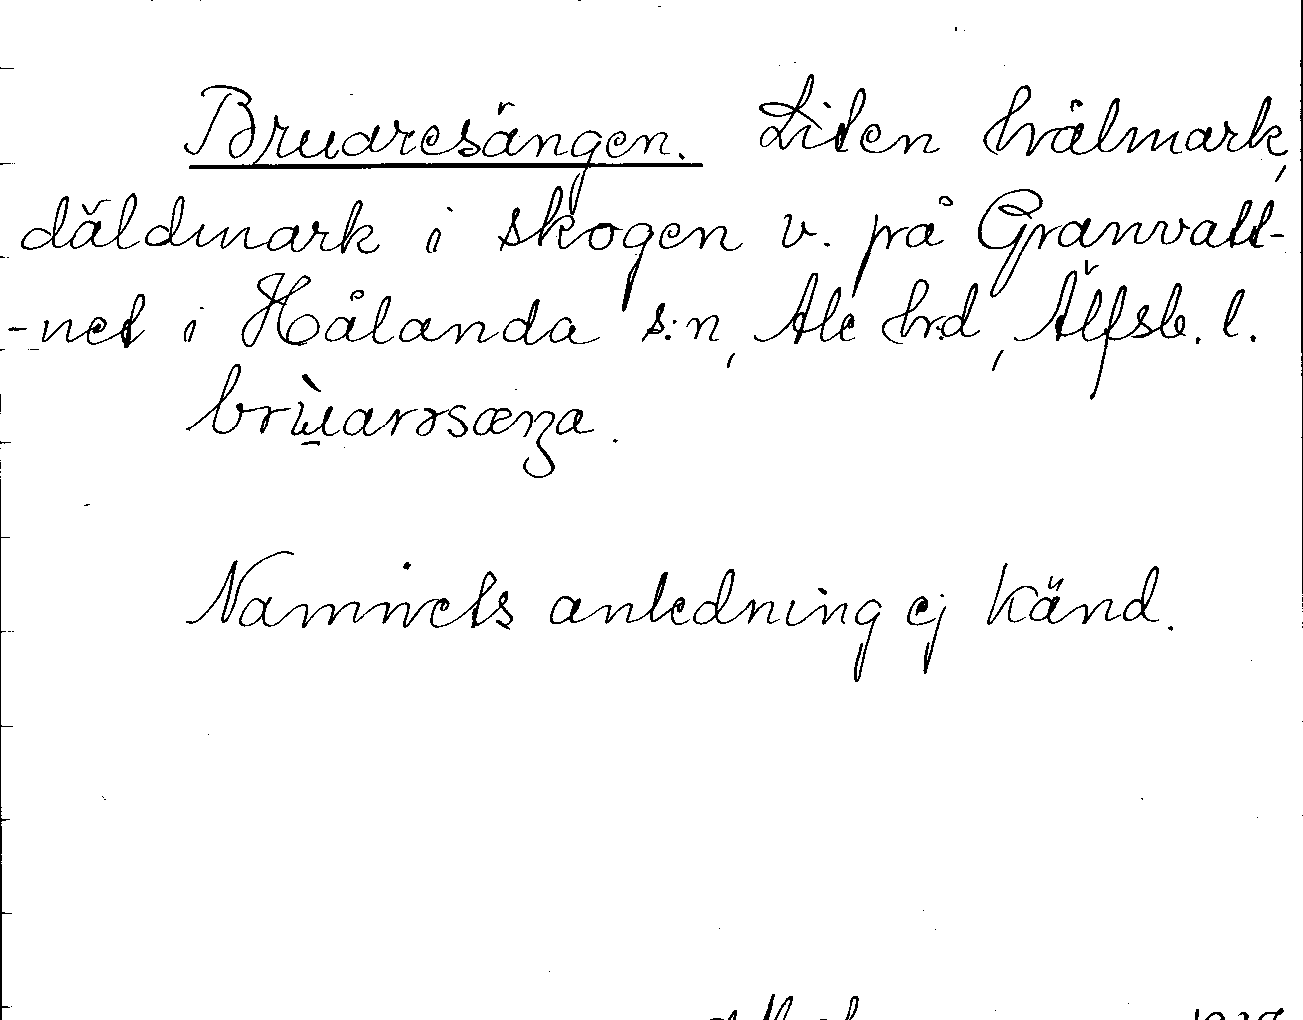 Bruaresängen. Liten hålmark,
däldmark i skogen v. på Granvatt-
-net i Hålanda s:n, Ale hd, Älfsb. l.
brùarəsæŋa.
Namnets anledning ej känd.